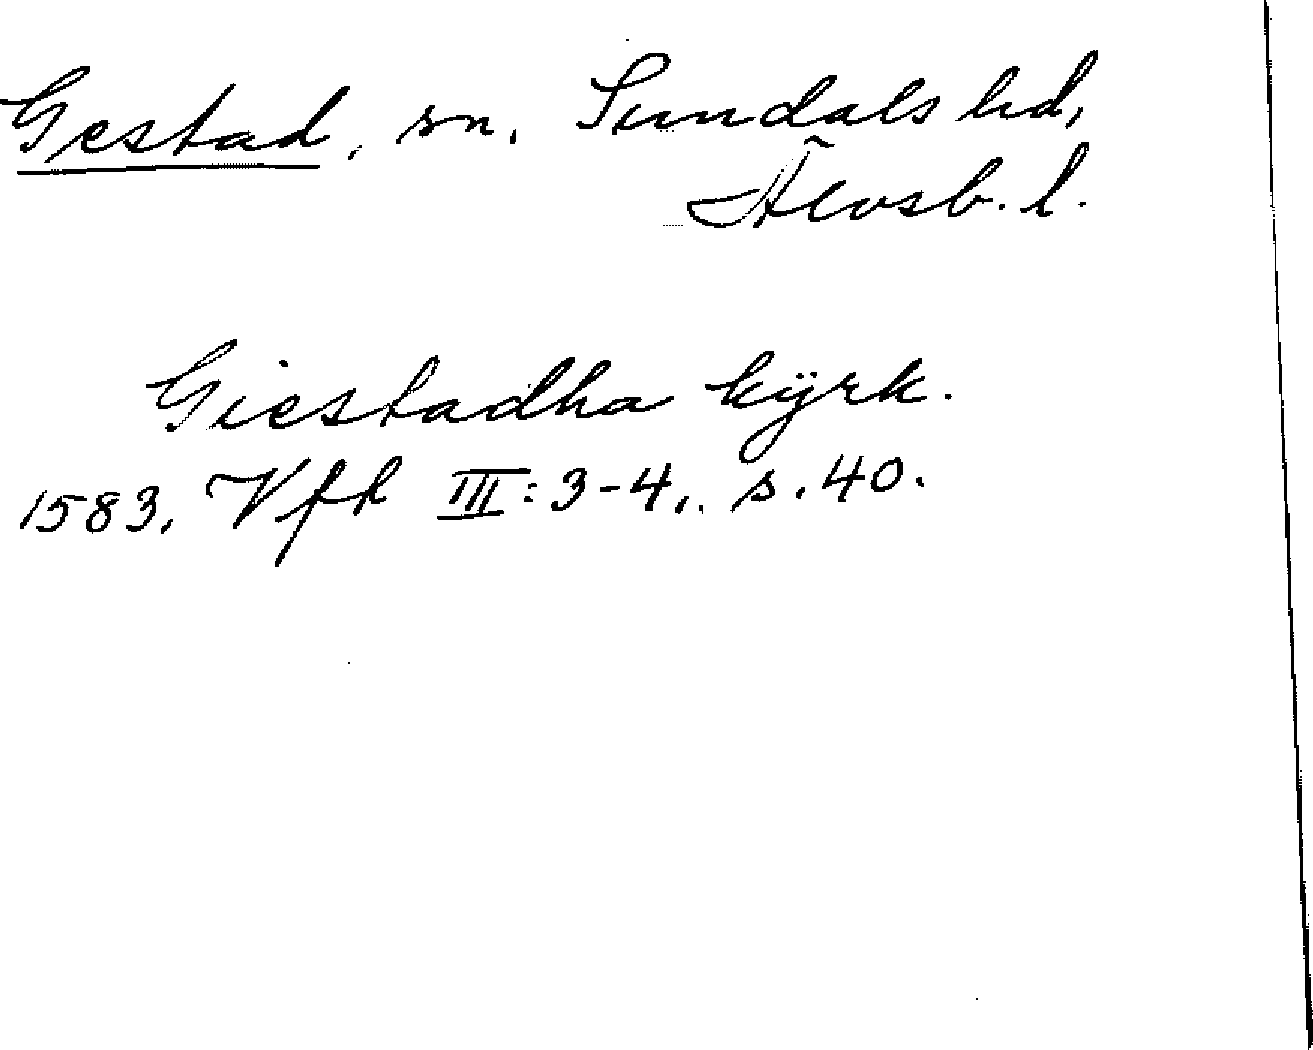 Gestad, sn. Sundals hd,
Älvsb. l.
Giestadha kÿrk.
1583, Vfk III: 3-4, s. 40.